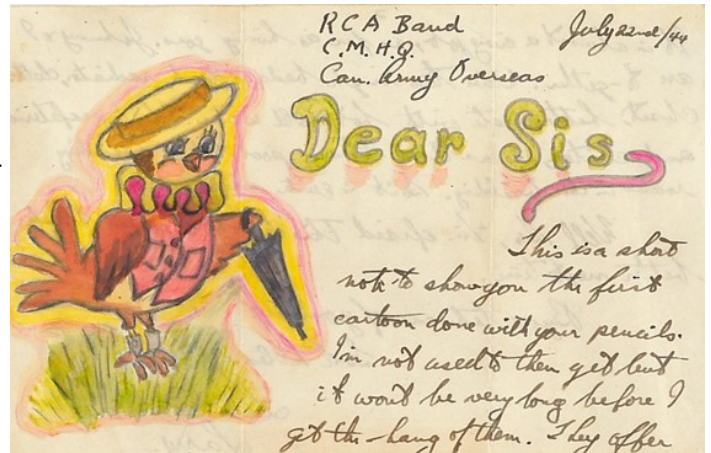 RCA Band
July 22nd/44
C.M.H.Q.
Can. Army Overseas
Dear Sis
This is a short
note to show you the first
cartoon done with your pencils.
I'm not used to them yet but
it won't be very long before I
get the hang of them. They offer